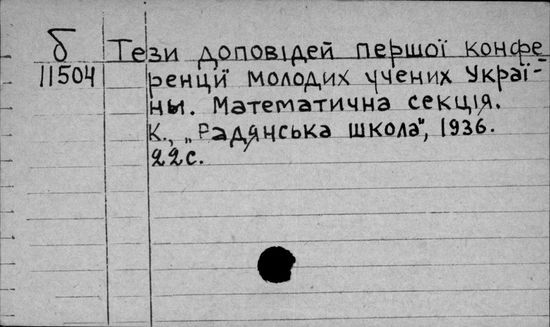 б
11504
Тези доповідей першої конфе-
ренції молодих учених Украї-
ни. Математична секція.
К., „Радянська школа", 1936.
22 с.